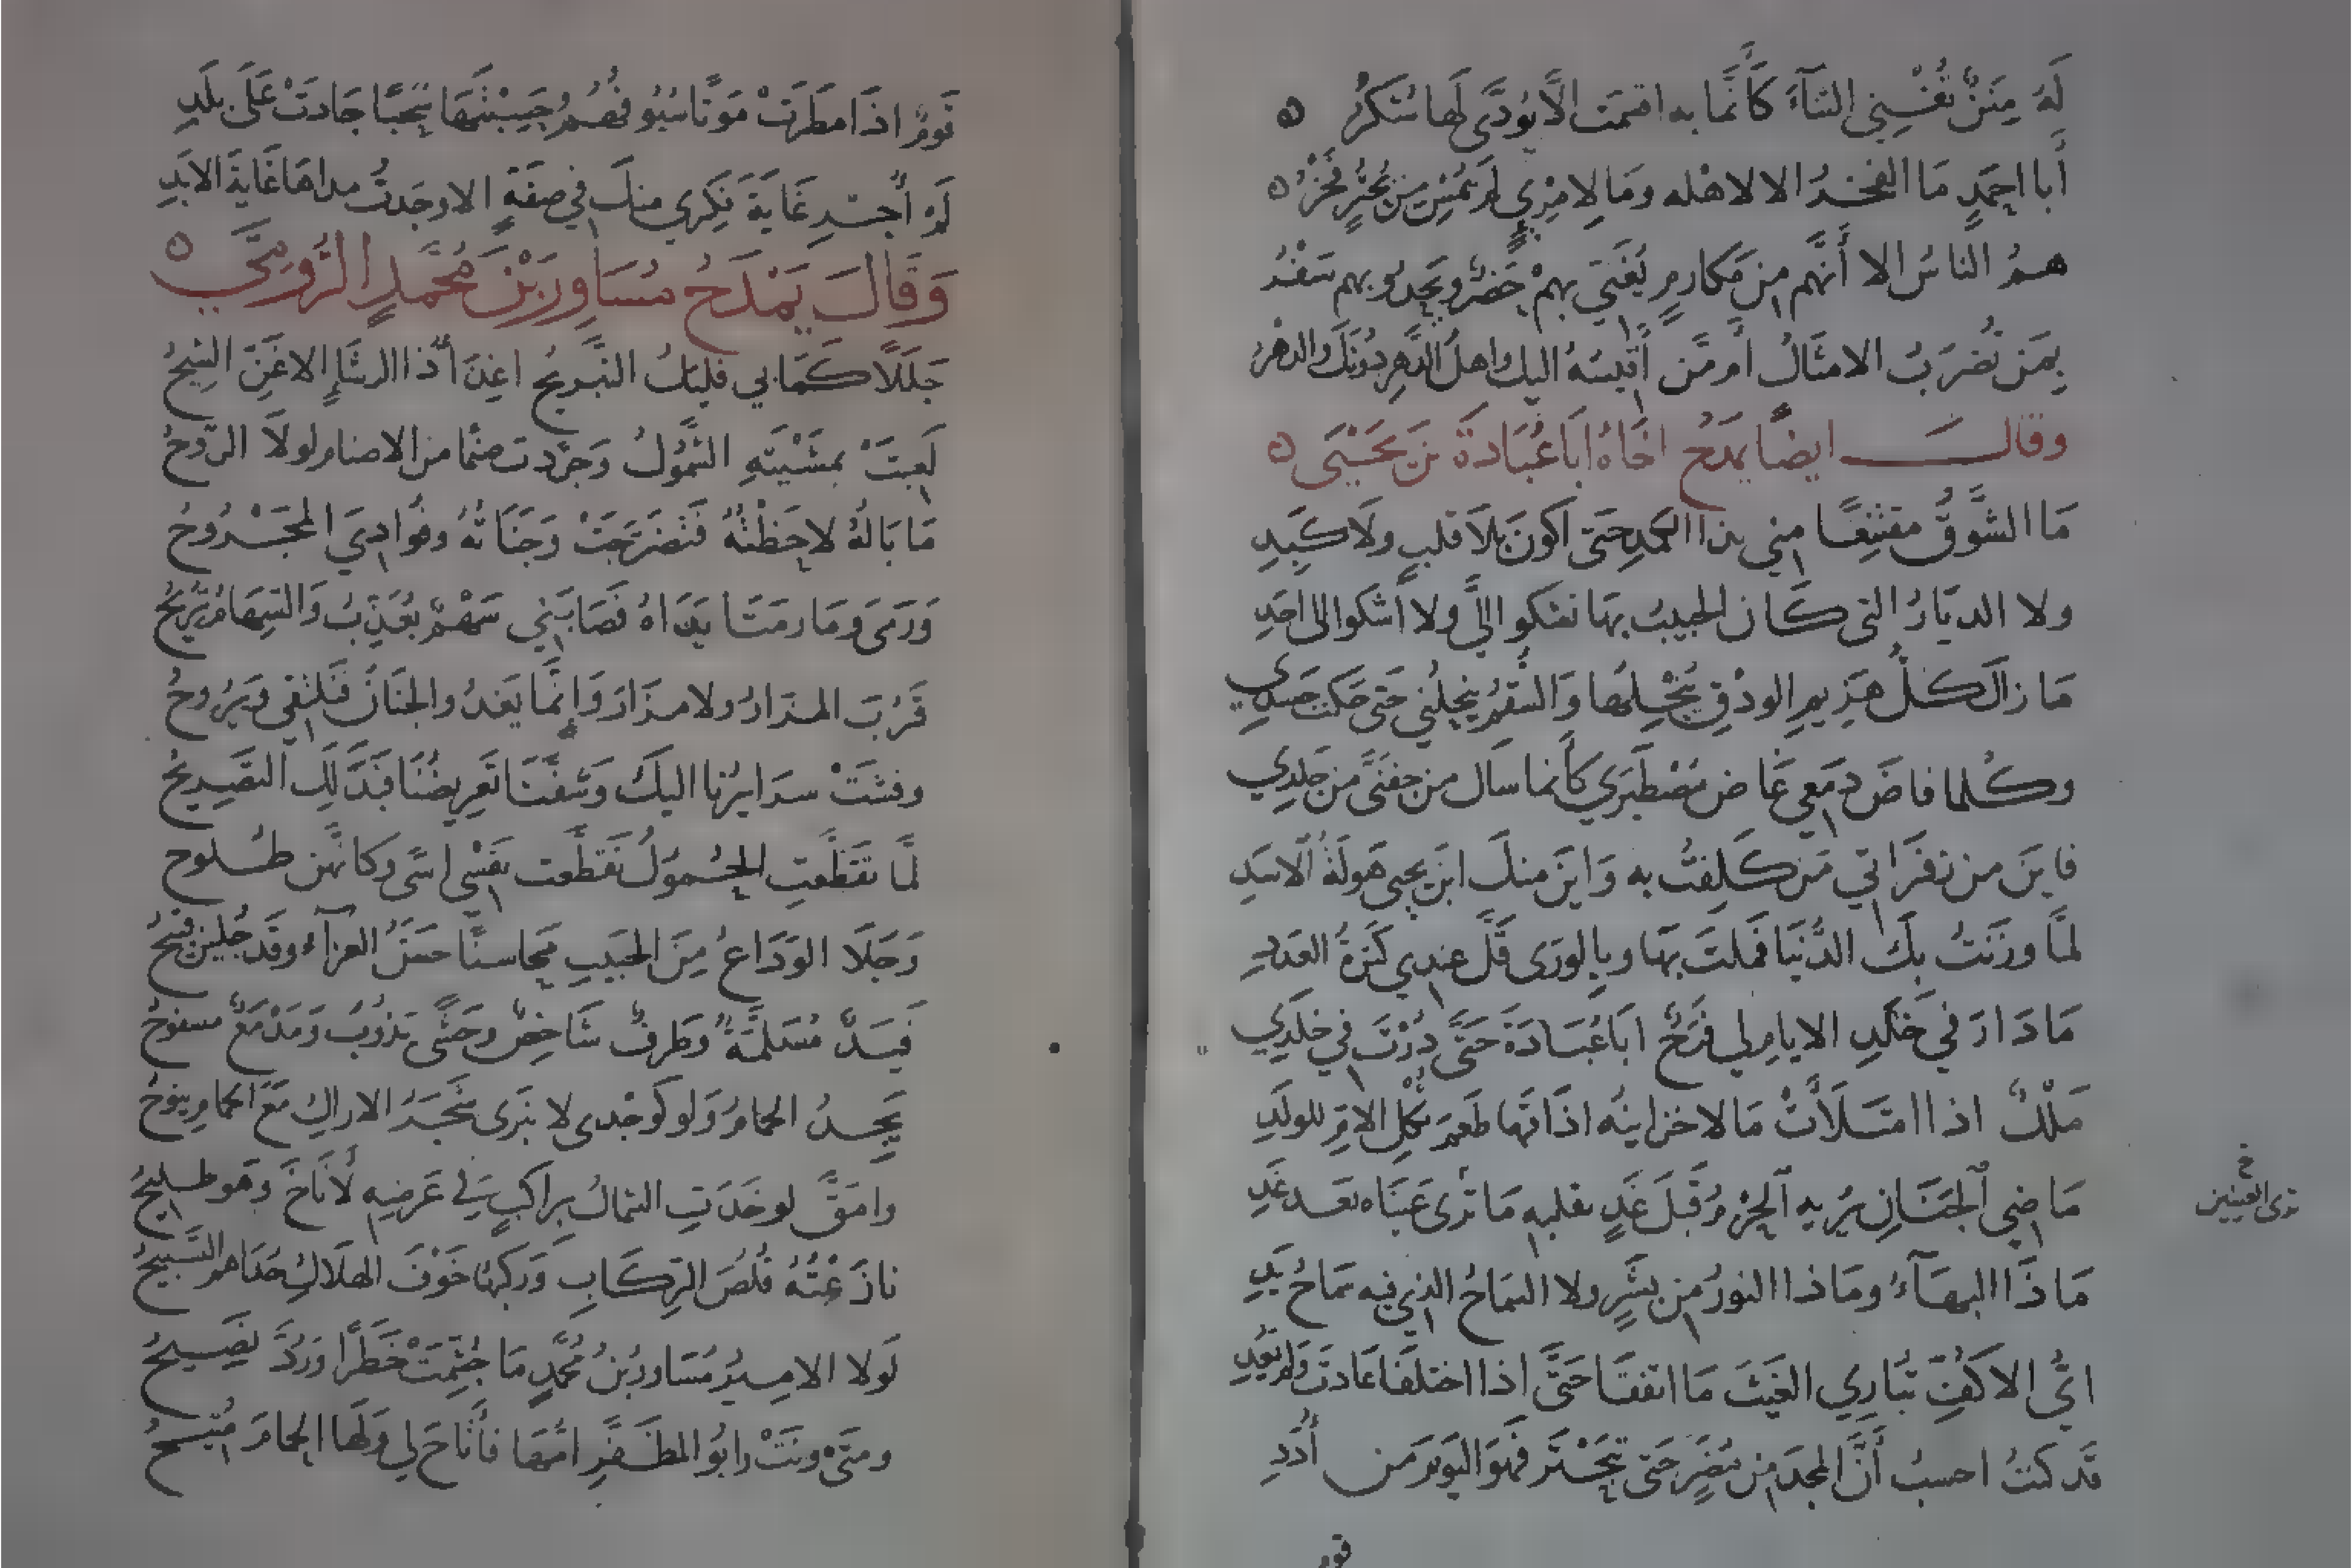 لَهُ مِنَنٌ تُفْنِي الثنآءَ كَأَنَّمَا به اقسمت الَّا يُودَّى لَها شكرُ ه
أَبا احمَدٍ مَا الفخرُ الا لاهله ومَا لِامْرِي لم يُمْسِ مِن بُحْتُرٍ فَخرُ ه
همُ الناسُ الا أَنَّهم مِن مَكارمٍ يُغَنِّي بهمْ حَضرٌ ويَحدُو بهم سَفْرُ
بِمَن نُضْرِبُ الامثَالُ أَم مَّن أَقيسُهُ اليك واهلُ الدَّهرِ دُونَكَ والدهرُ
وقالــ ايضًا يمدَحُ اخَاهُ ابَا عُبَادَةَ بن يَحْيَى ه
مَا الشَّوقُ مقتنِعًا مِني بذا الكمَدِ حَتى اكونَ بلَا قلبٍ ولَا كَبِدِ
ولا الديَارُ التى كَان الحبيبُ بهَا تشكو اليَّ ولا أشكوا الى احَدِ
مَا زالَ كلُّ هَزِيمِ الودْقِ يُنْحِلُهَا وَالسُّقمُ ينحِلُني حَتى حَكت جَسَدِي
وكُلما فاضَ دمَعي غَاض مُصْطَبَري كأنما سَال من جفنَىَّ من جَلَدِي
فاينَ من زفَرَاتي مَن كَلِفتُ به وَاينَ منكَ ابنَ يحيى صَولَةُ الاسَدِ
لمَّا وزَنتُ بكَ الدُّنيَا فَملتَ بهَا وبِالورَى قَلَّ عندِي كَثرةُ العَددِ
مَا دَارَ في خَلَدِ الايامِ لي فَرَحٌ ابَا عُبَادَةَ حَتَّى دُرْتَ في خَلَدِي
مَلْكٌ اذا امتَلَأتْ مَالا خزاينُه اذَاقَها طَعمَ ثكلِ الامِّ للولَدِ
مَاضِي الجَنَانِ يُرِيهِ الحَزْمُ قَبلَ غَدٍ بقلبِهِ مَا تَرى عَينَاه بَعد غَدِ
ترى العينين خ
مَا ذَا البهَآءُ ومَا ذا النورُ مِن بشَرٍ ولا السمَاحُ الذِي فيه سَمَاحُ يَدِ
ايُّ الاكَفِّ تُبَارِي الغَيثَ مَا اتفقَا حَتَّى اذا اختلفَا عَادَت وَلم تعُدِ
قَد كنتُ احسبُ أَنَّ المجدَ مِن مُضَرٍ حَتى تَبَحْتَر فَهوَ اليَومَ مِن أُدَدِ
قوم
قَومٌ اذَا مطَرَتْ مَوتًا سُيُوفُهُم حَسِبْتَهَا سُحُبًا جَادَتْ عَلَى بلَدِ
لم أُجرِ غَايةَ فِكرِي منكَ في صفَةٍ الا وجَدتُ مداهَا غَايةَ الابَدِ
وَقَالَ يَمْدَحُ مُسَاورَ بْنَ مُحَمَّدٍ الرُّومِيَّ ه
جَلَلًا كَمَا بي فليَكُ التَّبريحُ اغِذَآءُ ذا الرشَإِ الاغَنِّ الشِّيحُ
لَعبَتْ بمشْيَتِهِ الشَّمُولُ وَجَرَّدت صنمًا من الاصنام لولَا الرّوحُ
مَا بَالُهُ لاحَظْتُهُ فَتَضَرَّجَتْ وَجَنَاتُهُ وفُوَادِيَ المجَرُوحُ
وَرَمَى ومَا رمَتَا يدَاهُ فَصَابَني سَهْمٌ يُعَذِّبُ وَالسِّهَامُ تُرِيحُ
قَرُبَ المزَارُ ولا مزَارَ وَإِنَّمَا يَغدُو الجَنَانُ فَنَلتقي ويَرُوحُ
وفشَتْ سرَايرُنا اليكَ وَشفَّنَا تَعرِيضُنَا فَبدَا لَكِ التصْرِيحُ
لمَّا تقَطَّعَتِ الحُمولُ تَقَطَّعت نفسْي اسًى وكانَّهن طلوح
وَجَلَا الوَدَاعُ مِنَ الحَبيبِ مَحاسنًا حسْنُ العَزآءِ وقَد جُلِينَ قبيحُ
فَيدٌ مُسَلِّمَةٌ وَطَرفٌ شَاخِصٌ وحَشًى يَذُوبُ وَمَدْمَعٌ مسفوحُ
يَجِدُ الحمامُ وَلو كَوجْدى لا نبَرى شَجَرُ الاراكِ مَعَ الحمامِ ينوحُ
وامَقَّ لو خَدَتِ الشمالُ بِراكبٍ في عَرضِهِ لَأناخَ وَهو طليحُ
نازَعْتُهُ قُلُصَ الرِّكَابِ وَركبُها خَوْفَ الهَلَاكِ حُدَاهم التَّسبيحُ
لَولا الاميرُ مُسَاورُ بْنُ مُحَمَّدٍ مَا جُشِّمَتْ خَطَرًا وَرُدَّ نَصِيحُ
ومتَى ونَتْ وابُو المظفَّرِ امُّهَا فأَتَاحَ لي وَلَها الحمامَ مُتِيحُ